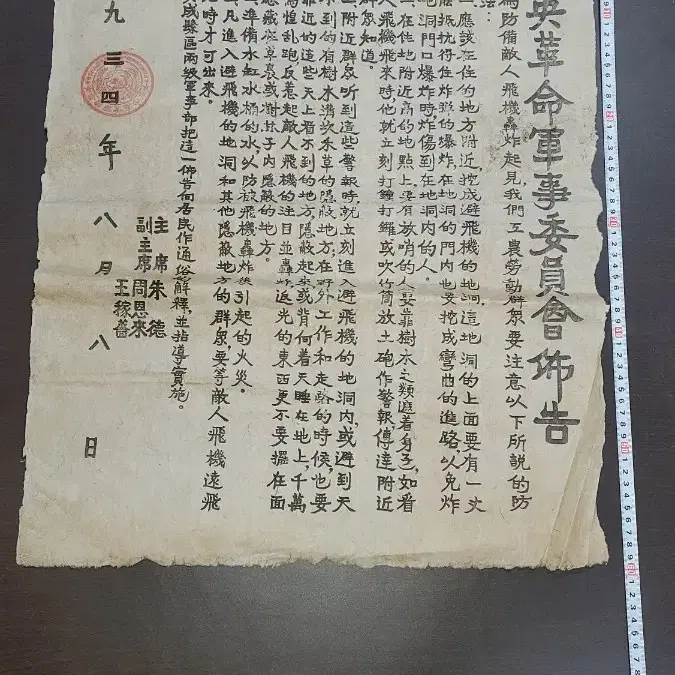 英革命軍事委員會佈告
為防備敵人飛機轟炸起見，我們工農勞動群眾要注意以下所說的防
法：
一、應該在住的地方附近，挖成避飛機的地洞，這地洞的上面要有一丈
能抵抗得住炸彈的爆炸，在地洞的門內也要挖成彎曲的進路，以免炸
地洞門口爆炸時，炸傷到在地洞內的人。
二、在住地附近高的地點上，要有放哨的人，要靠樹木之類遮着身子，如看
人飛機飛來時，他就立刻打鐘打鑼或吹竹筒放土砲作警報，傳達附近
群眾知道。
三、附近群眾听到這些警報時，就立刻進入避飛機的地洞內，或避到天
不到的有樹木溝坎禾草的隱蔽地方，在野外工作和走路的時候，也要
靠近的這些天上看不到的地方隱蔽起來，或背向着天睡在地上，千萬
驚惶亂跑反惹起敵人飛機的注目並轟炸，返光的東西更不要摆在面
應藏在草裏或樹林子內隱蔽的地方。
四、準備水缸水桶的水，以防放飛機轟炸後引起的火災。
五、凡進入避飛機的地洞和其他隱蔽地方的群眾，要等敵人飛機遠飛
時才可出來。
成縣區兩級軍事部把這一佈告向居民作通俗解釋，並指導實施。
主席 朱德
副主席 周恩來
王稼薔
九三四年八月八日